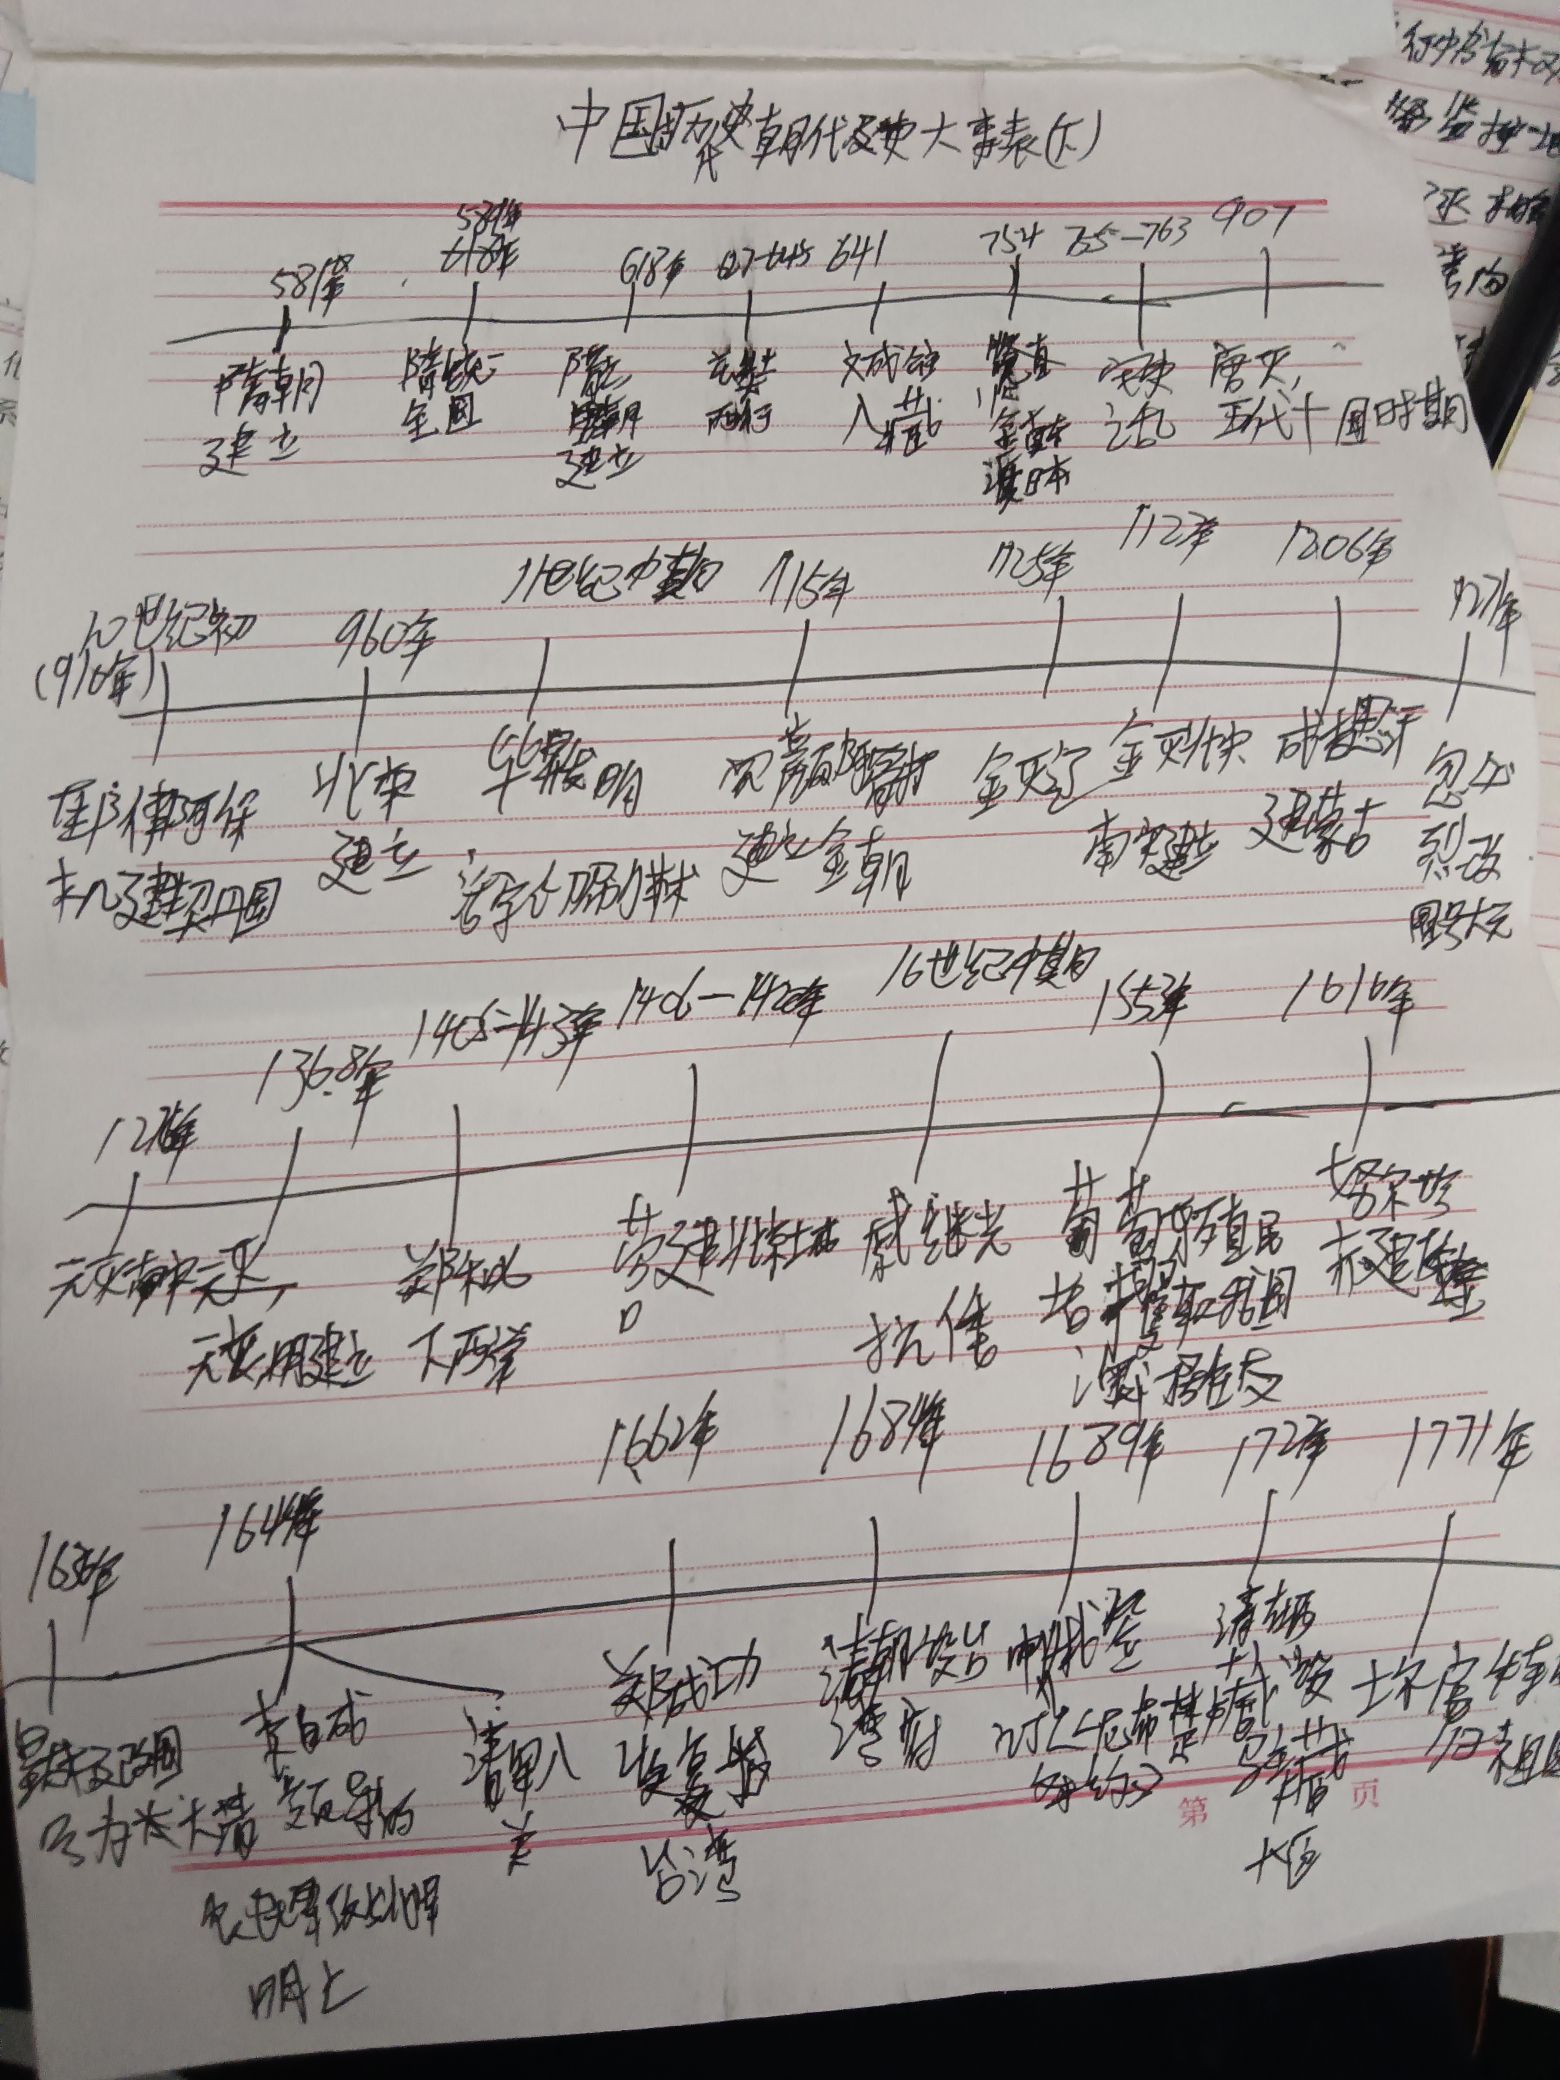 中国历史朝代及史大事表(下)
代
581年 589年 618年 627-645 641 754 755-763 907
隋朝 隋统一 隋亡 玄奘 文成公 鉴真 安史 唐灭,
建立 全国 唐朝 西行 入藏 之乱 五代十国时期
建立 渡日本
10世纪初 960年 11世纪中期 1115年 1125年 1127年 1206年 1271年
(916年)
耶律阿保 北宋 毕昇发明 完颜阿骨打 金灭辽 金灭北宋 成吉思汗 忽必
机建契丹国 建立 活字印刷术 建立金朝 南宋建立 建蒙古 烈改
国号大元
1276年 1368年 1405-1433年 1406—1420年 16世纪中期 1553年 1616年
元灭南宋 元灭, 郑和 营建北京城 戚继光 葡萄牙殖民 努尔哈
明建立 下西洋 抗倭 者攫取我国 赤建后金
澳门居住权
1636年 1644年 1662年 1684年 1689年 1727年 1771年
皇太极改国 李自成 清军入 郑成功 清朝设台 中俄签 清在西 土尔扈特
号为大清 领导的 关 收复 湾府 订《尼布楚 藏设 归祖国
台湾 条约》 驻藏
大臣
明亡
第 页